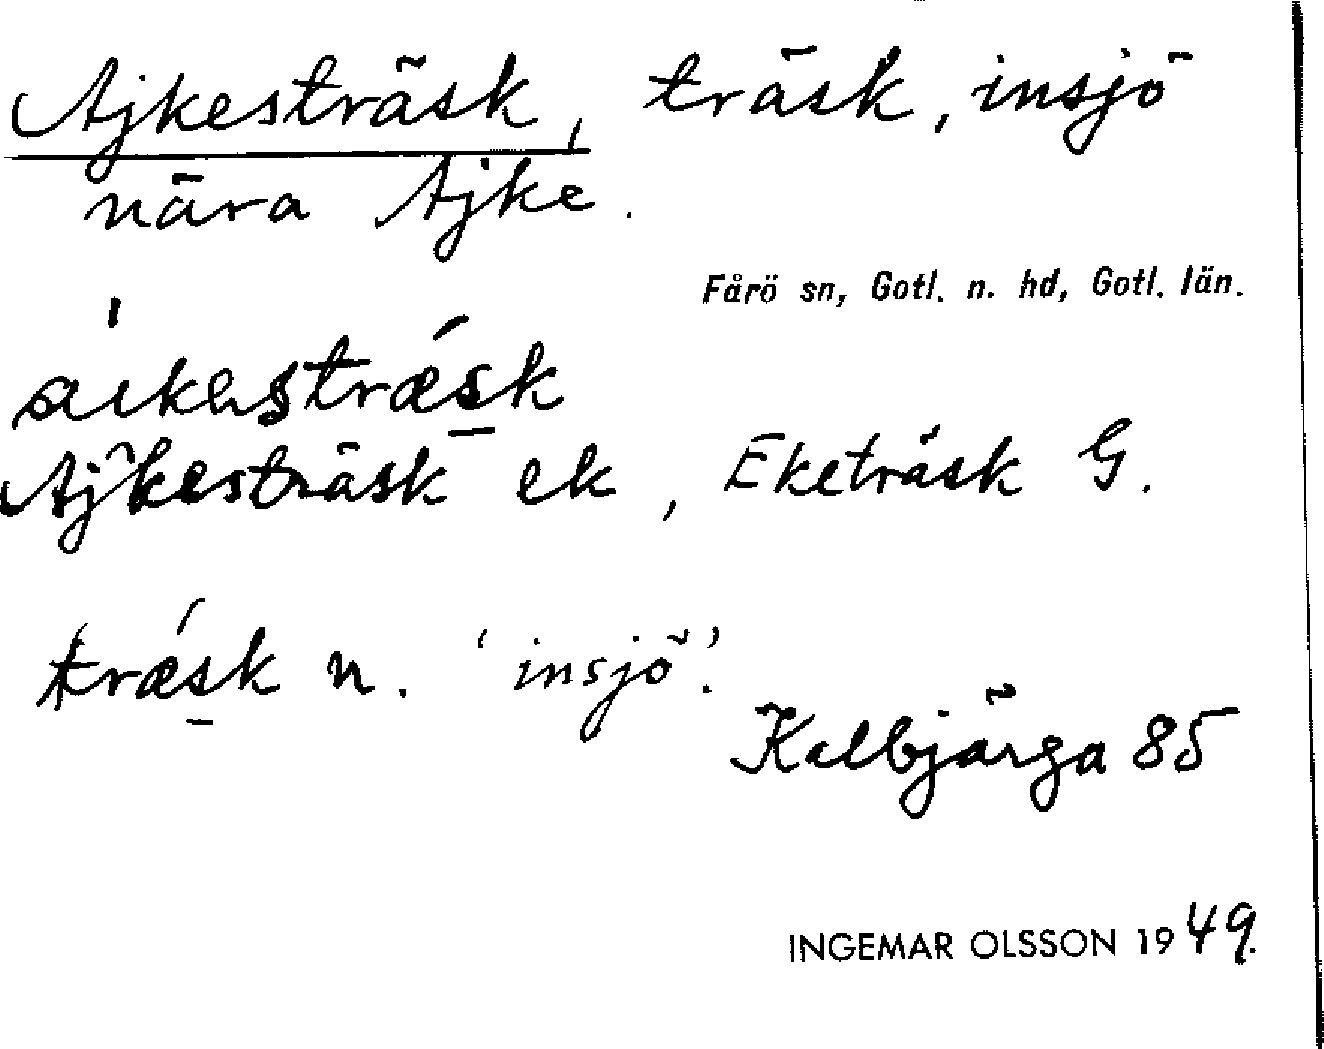 Ajkesträsk, träsk, insjö
nära Ajke.
Fårö sn, Gotl. n. hd, Gotl. län.
aikesträsk
Ajkesträsk ek, Eketräsk G.
træsk n. 'insjö'.
Kalbjärga 85
INGEMAR OLSSON 1949.